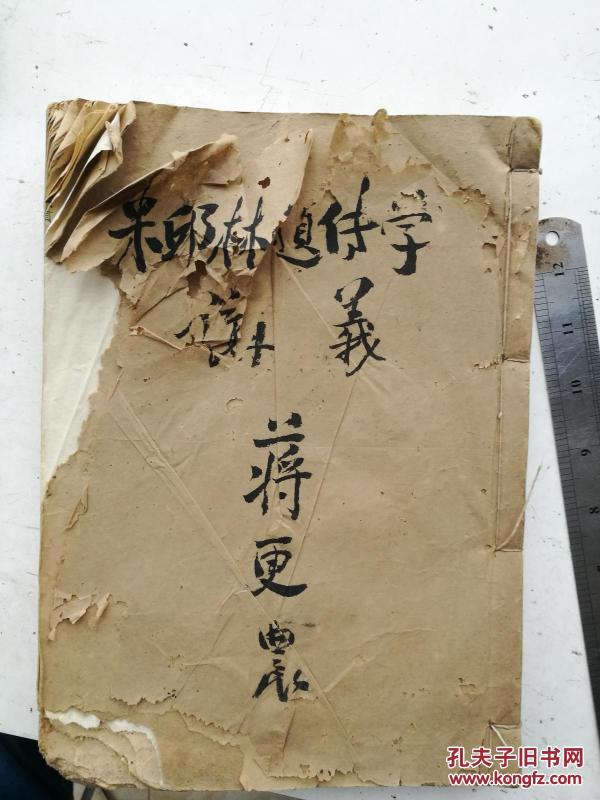 米邱林遺传学
講義
蒋更農
12
11
10
9
8
孔夫子旧书网
www.kongfz.com